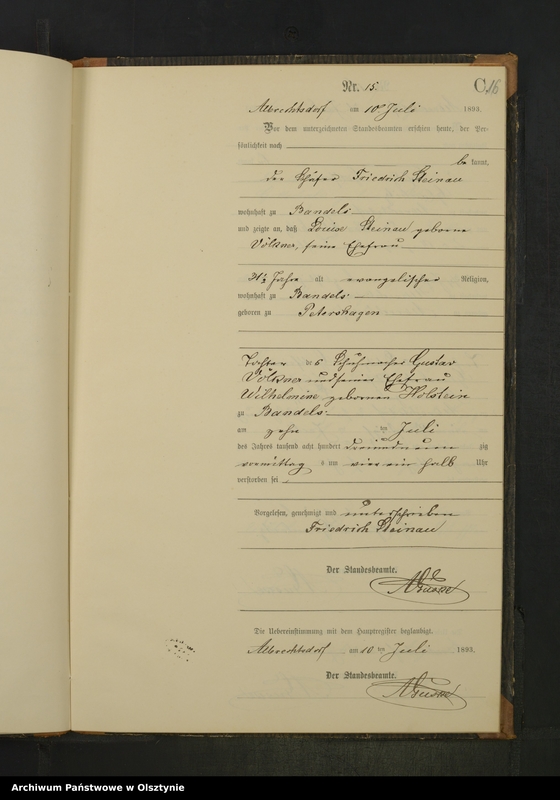 Nr. 15.
C. 16
Albrechtsdorf am 10 Juli 1893.
Vor dem unterzeichneten Standesbeamten erschien heute, der Per-
sönlichkeit nach
be kannt,
der Schäfer Friedrich Steinau
wohnhaft zu Bandels
und zeigte an, daß Louise Steinau geborne
Völkner, seine Ehefrau
Jahre alt evangelischer Religion,
wohnhaft zu Bandels
geboren zu Petershagen
Tochter des Schuhmacher Gustav
Völkner und seiner Ehefrau
Wilhelmine gebornen Holstein
zu Bandels
am zehn ten Juli
des Jahres tausend acht hundert dreiundneun zig
vormittag s um vier ein halb Uhr
verstorben sei
Vorgelesen, genehmigt und unterschrieben
Friedrich Steinau
Der Standesbeamte.
Die Uebereinstimmung mit dem Hauptregister beglaubigt.
Albrechtsdorf am 10 ten Juli 1893.
Der Standesbeamte.
Archiwum Państwowe w Olsztynie